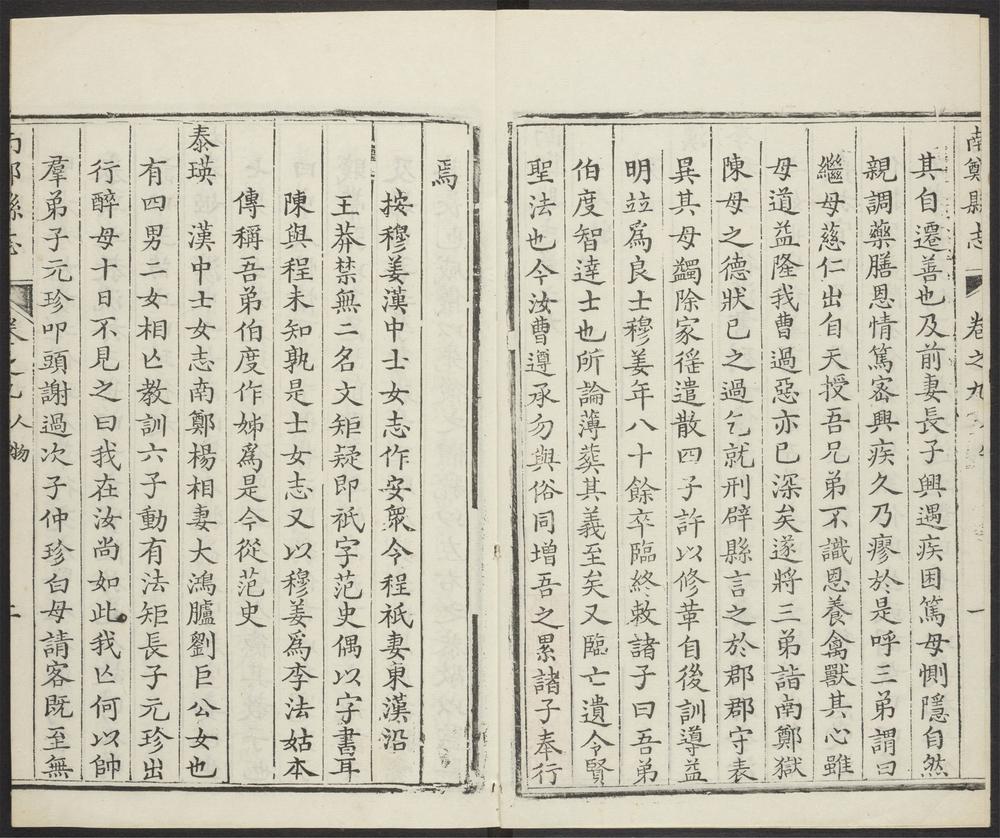 南鄭縣志 卷之九 一
其自遷善也及前妻長子興遇疾困篤母惻隱自然
親調藥膳恩情篤密興疾久乃瘳於是呼三弟謂曰
繼母慈仁出自天授吾兄弟不識恩養禽獸其心雖
母道益隆我曹過惡亦已深矣遂將三弟詣南鄭獄
陳母之德狀已之過乞就刑辟縣言之於郡郡守表
異其母蠲除家徭遣散四子許以修革自後訓導益
明竝爲良士穆姜年八十餘卒臨終敕諸子曰吾弟
伯度智達士也所論薄葬其義至矣又臨亡遺令賢
聖法也今汝曹遵承勿與俗同增吾之累諸子奉行
焉
按穆姜漢中士女志作安衆令程祗妻東漢沿
王莽禁無二名文矩疑即祗字范史偶以字書耳
陳與程未知孰是士女志又以穆姜爲李法姑本
傳稱吾弟伯度作姊爲是今從范史
泰瑛 漢中士女志南鄭楊相妻大鴻臚劉巨公女也
有四男二女相亾教訓六子動有法矩長子元珍出
行醉母十日不見之曰我在汝尚如此我亾何以帥
羣弟子元珍叩頭謝過次子仲珍白母請客既至無
南鄭縣志 卷之九人物 二